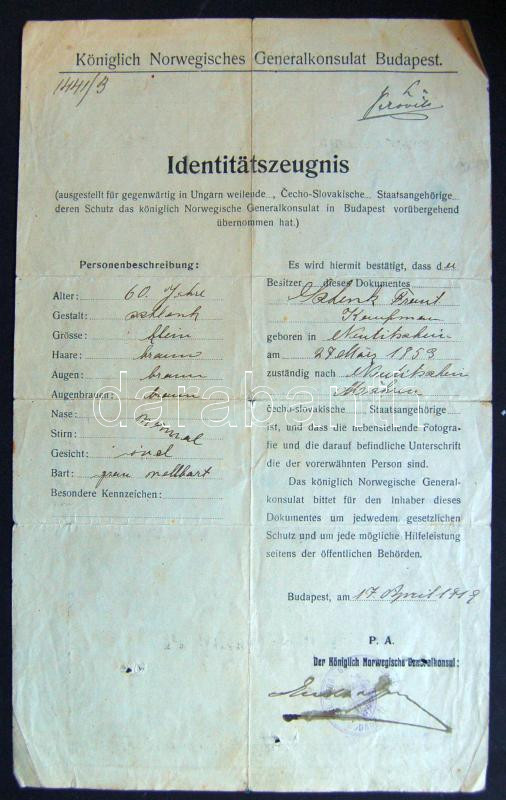 Königlich Norwegisches Generalkonsulat Budapest.
1441/B
Identitätszeugnis
(ausgestellt für gegenwärtig in Ungarn weilende..., Čecho-Slovakische... Staatsangehörige...
deren Schutz das königlich Norwegische Generalkonsulat in Budapest vorübergehend
übernommen hat.)
Personenbeschreibung:
Alter: 60. Jahre
Gestalt: schlank
Grösse: klein
Haare: braun
Augen: braun
Augenbrauen: braun
Nase: normal
Stirn:
Gesicht: oval
Bart: grau vollbart
Besondere Kennzeichen:
Es wird hiermit bestätigt, dass der
Besitzer dieses Dokumentes
Kaufman
geboren in Neutitschein
am 28 März 1853
zuständig nach Neutitschein
Mähren
čecho-slovakische Staatsangehörige
ist, und dass die nebenstehende Fotogra-
fie und die darauf befindliche Unterschrift
die der vorerwähnten Person sind.
Das königlich Norwegische General-
konsulat bittet für den Inhaber dieses
Dokumentes um jedweden gesetzlichen
Schutz und um jede mögliche Hilfeleistung
seitens der öffentlichen Behörden.
Budapest, am 17. April 1919
P. A.
Der Königlich Norwegische Generalkonsul:
darabanth